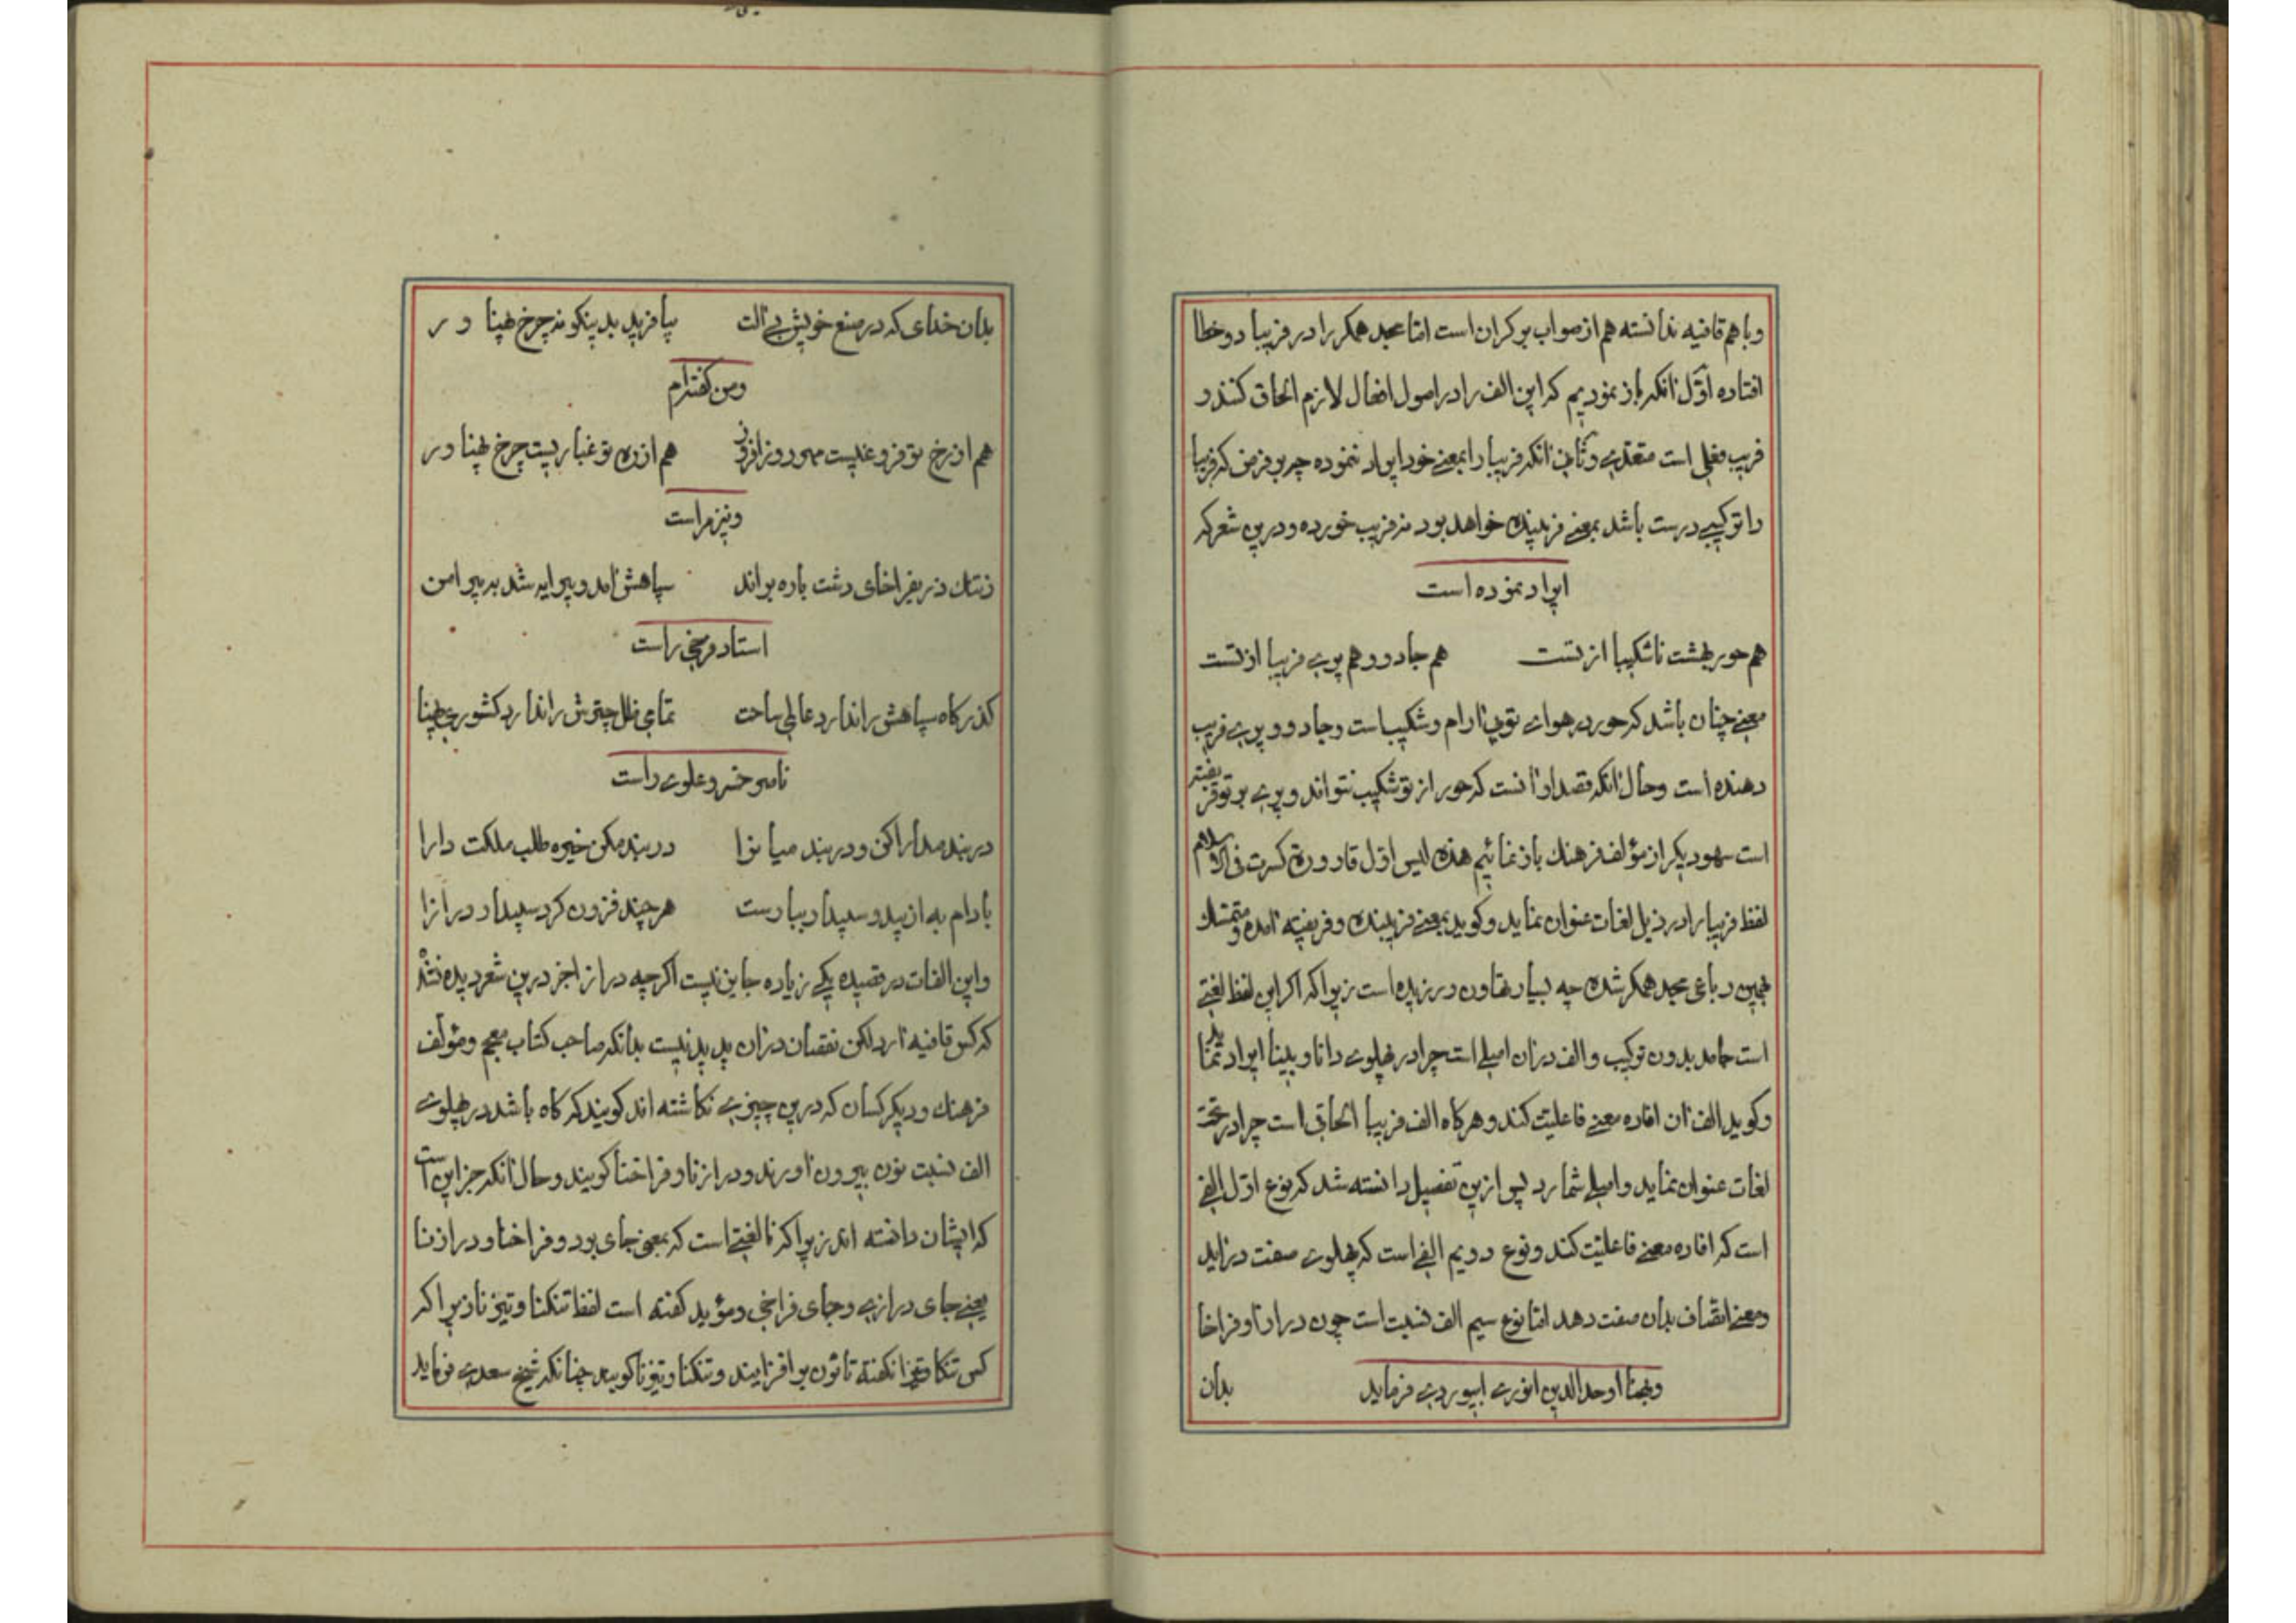 وباهم قافیه ندانسته هم از صواب برکران است امّا مجد همکر را در فریبا دو خطا
افتاده اوّل آنکه باز نمودیم که این الف را در اصول افعال لازم الحاق کنند و
فریب فعلی است متعدّی و ثانی آنکه فریبا را بمعنی خود ایراد ننموده چه بر فرض که فریبا
را ترکیبی درست باشد بمعنی فریبنده خواهد بود نه فریب خورده و درین شعر که
ایراد نموده است
هم حور بهشت ناشکیبا از تست هم جادو و هم پری فریبا از تست
معنی چنان باشد که حور در هوای تو بی آرام و شکیب است و جادو و پری فریب
دهنده است و حال آنکه قصد او آنست که حور از تو شکیب نتواند و پری بر تو فریفته
است سهو دیگر از مؤلف فرهنك باز نمائیم هذه لیس اوّل قارورة کسرت فی الاسلام
لفظ فریبا را در ذیل لغات عنوان نماید و کوید بمعنی فریبنده و فریفته آمده و متمسّك
بهمین رباعی مجد همکر شده چه بسیار تهاون ورزیده است زیرا که اکر این لفظ لغتی
است جامد بدون ترکیب و الف در آن اصلی است چرا در پهلوی دانا و بینا ایراد نماید
و کوید الف آن افاده معنی فاعلیّت کند و هرکاه الف فریبا الحاقی است چرا در تحت
لغات عنوان نماید و اصلی شمارد پس ازین تفصیل دانسته شد که نوع اوّل الفی
است که افاده معنی فاعلیّت کند و نوع دویم الفی است که پهلوی صفت درآید
و معنی اتّصاف بدان صفت دهد امّا نوع سیم الف نسبت است چون درازا و فراخا
و پهنا اوحد الدین انوری ابیوردی فرماید
بدان
بدان خدای که در صنع خویش بی آلت بیافرید بدینکونه چرخ پهناور
و من کفته‌ام
هم از رخ تو فروغیست مهر روز افزون هم از ره تو غباریست چرخ پهناور
و نیز مراست
زتنك در بفراخای دشت باره براند سپاهش آمد و پیرایه شد به پیرامن
استاد فرخی راست
کذرکاه سپاهش را ندارد عالمی ساحت تمامی ظل چترش را ندارد کشوری پهنا
ناصر خسرو علوی راست
در بند مدارا کن و در بند میانرا در بند مکن خیره طلب ملکت دارا
بادام به از بید و سپیدار ببارست هر چند فزون کرد سپیدار درازا
و این الفات در قصیده یکی زیاده جایز نیست اکرچه درازا جز درین شعر دیده نشد
که کس قافیه آرد لکن نقصان در آن پدید نیست بدانکه صاحب کتاب معجم و مؤلف
فرهنك و دیکر کسان که درین چیزی نکاشته اند کویند که کاه باشد در پهلوی
الف نسبت نون بیرون آورند و درازنا و فراخنا کویند و حال آنکه جز این است
که ایشان دانسته اند زیرا که نا لغتی است که بمعنی جای بود و فراخنا و درازنا
یعنی جای درازی و جای فراخی و مؤید کفته است لفظ تنکنا و تیزنا زیرا که
کس تنکا و تیزا نکفته تا نون بر افزایند و تنکنا و تیزنا کویند چنانکه شیخ سعدی فرماید